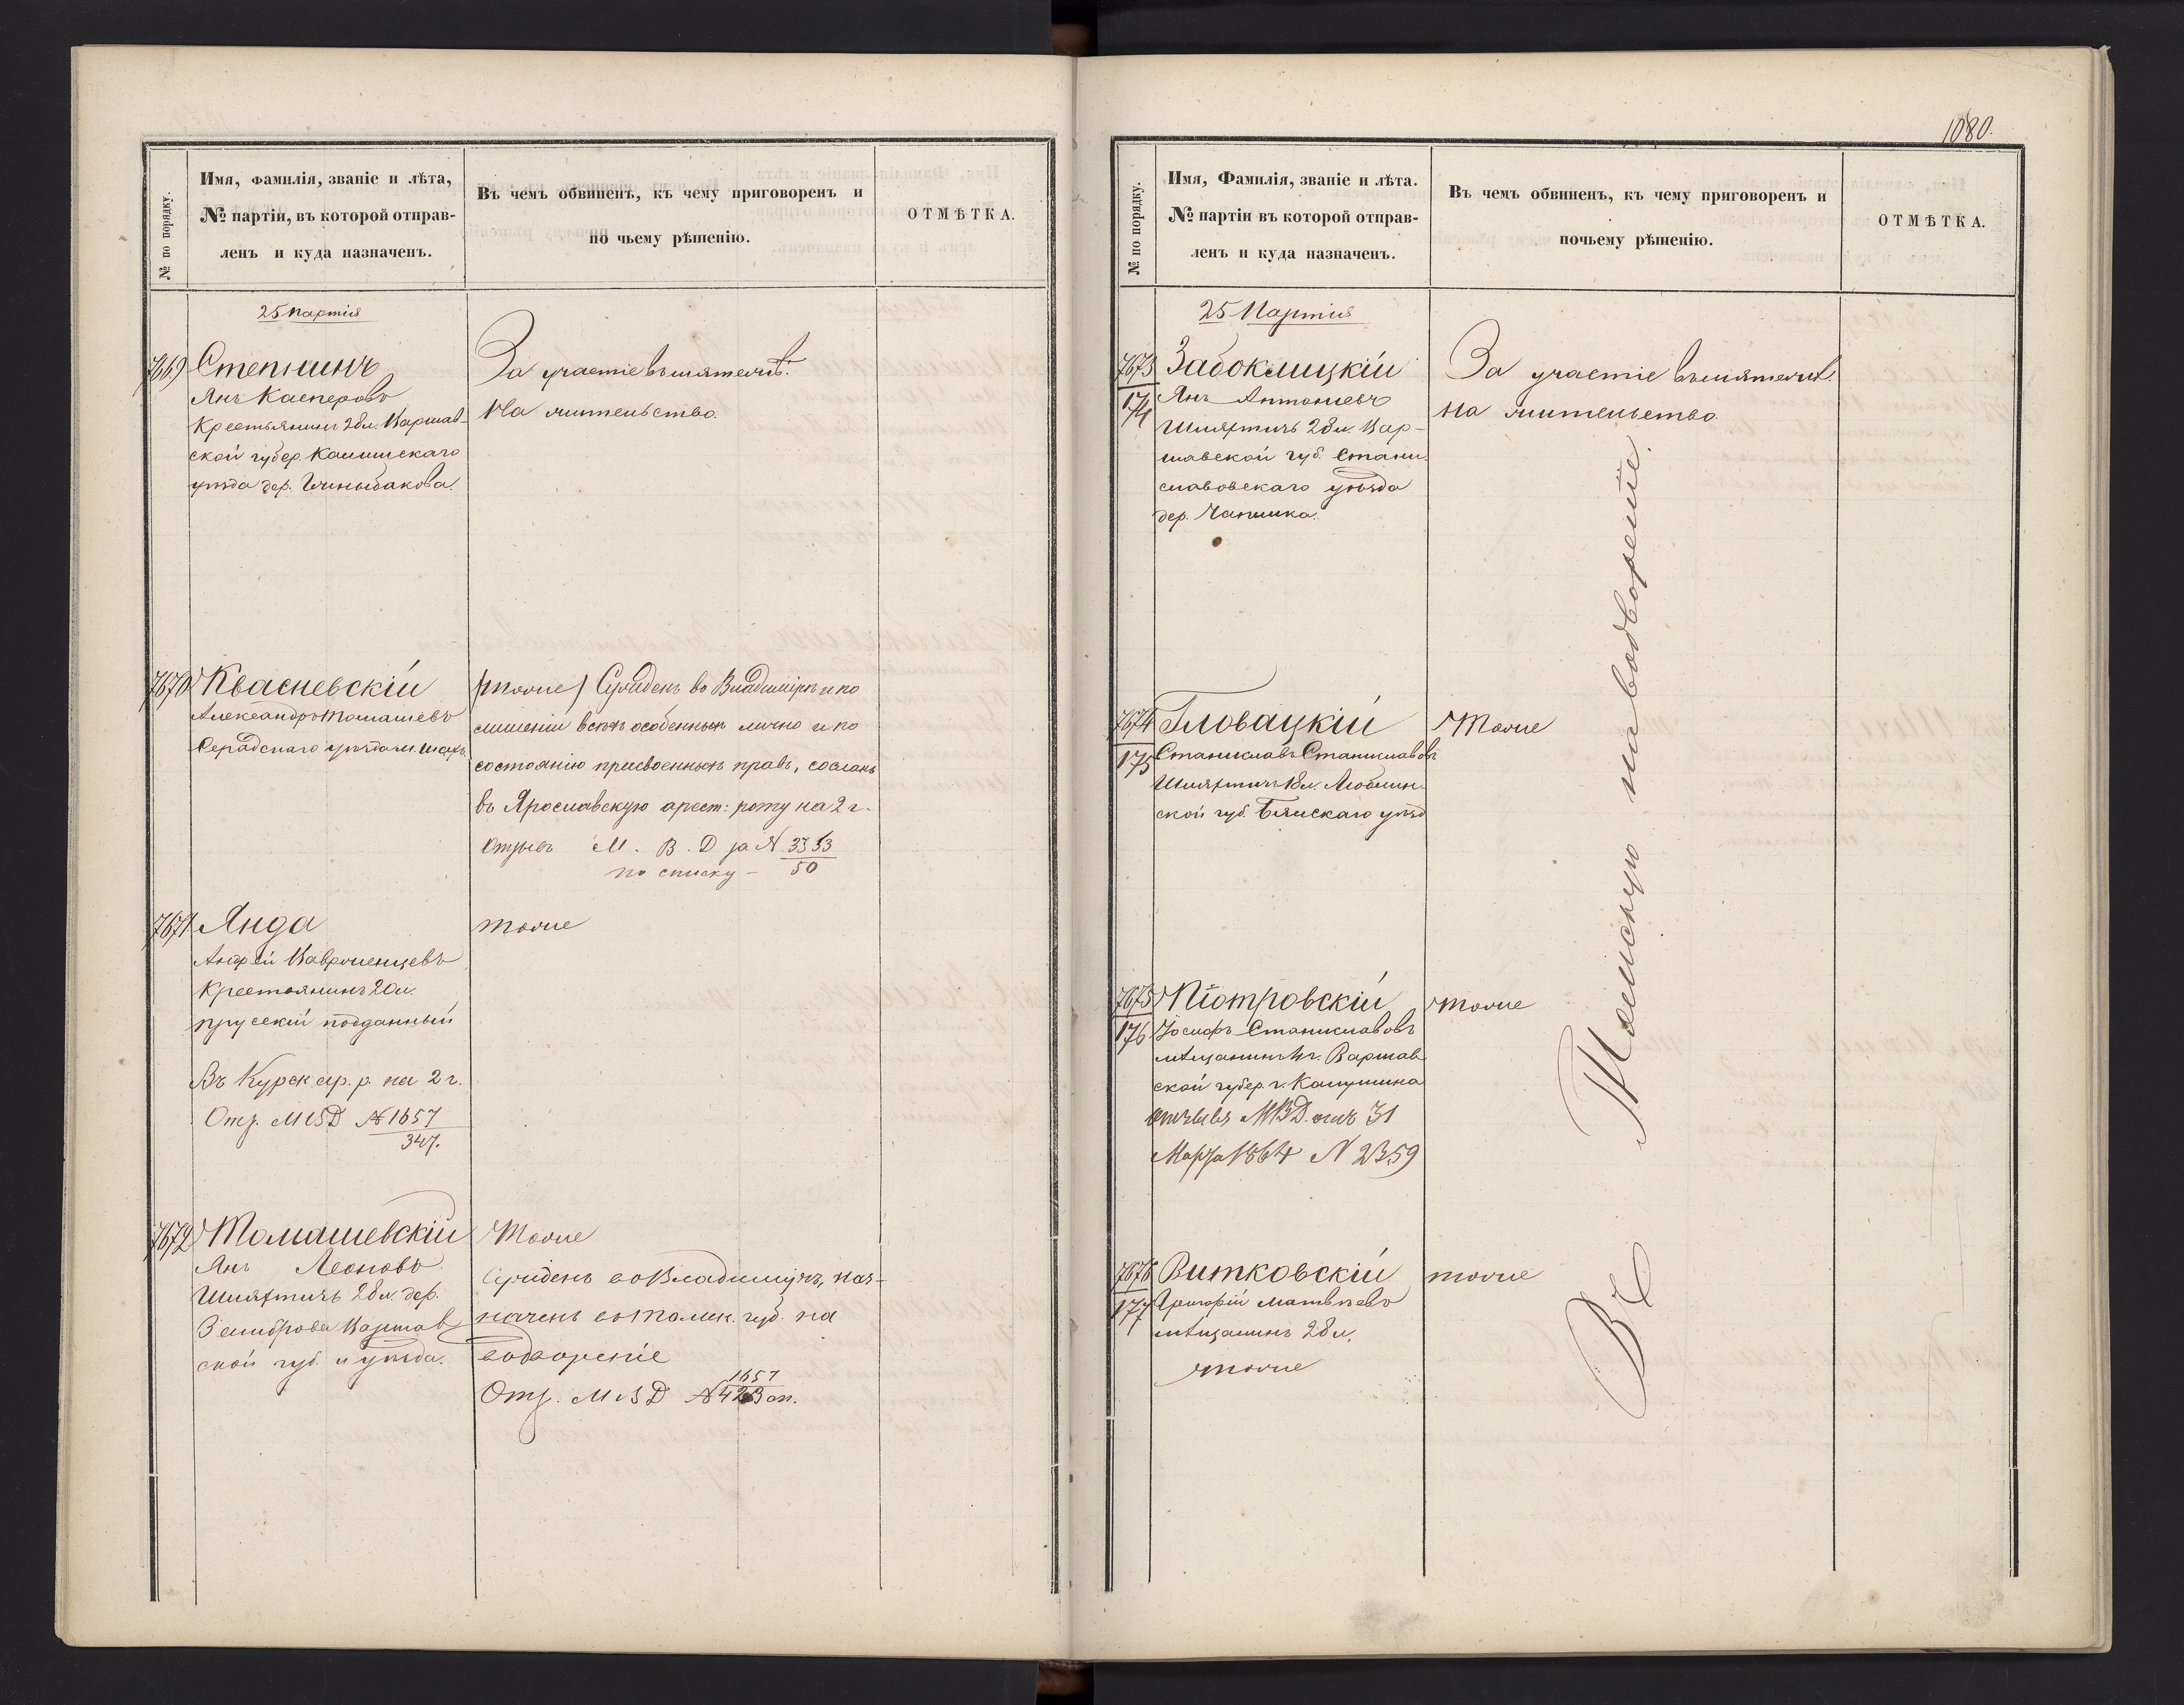 № по порядку.
Имя, фамилія, званіе и лѣта,
№ партіи, въ которой отправ-
ленъ и куда назначенъ.
Въ чемъ обвиненъ, къ чему приговоренъ и
по чьему рѣшенію.
ОТМѢТКА.
25 партія
7669
Степ
Янъ Касперовъ
Крестьянинъ 28 л. Варшав-
ской губер. Калишскаго
уѣзда дер.
За участіе въ мятежѣ.
На жительство.
7670
Квасневскій
Александръ Томашевъ
Серадскаго уѣзда м.
(тоже) Сужденъ во Владимірѣ и по
лишеніи всѣхъ особенныхъ лично и по
состоянію присвоенныхъ правъ, сосланъ
въ Ярославскую арест: роту на 2 г.
Отзывъ М. В. Д за № 3353
по списку - 50
7671
Янда
Андрей Вавр
Крестьянинъ 20 л.
прусскій подданный
Въ Курск ар. р. на 2 г.
Отз. МВД № 1657
347.
тоже
7672
Томашевскій
Янъ Леоновъ
Шляхтичъ 28 л. дер.
Варшав
ской губ. и уѣзда.
Тоже
Сужденъ во Владимірѣ, наз-
наченъ въ Томск. губ. на
водвореніе
1657
Отз. МВД № 423 оп.
1080.
№ по порядку.
Имя, Фамилія, званіе и лѣта.
№ партіи въ которой отправ-
ленъ и куда назначенъ.
Въ чемъ обвиненъ, къ чему приговоренъ и
почьему рѣшенію.
ОТМѢТКА.
25 Партія
7673
174
Забоклицкій
Янъ Антоніевъ
Шляхтичъ 28 л. Вар-
шавской губ. Стани-
славовскаго уѣзда
дер.
За участіе въ мятежѣ.
на жительство
7674
175
Гловацкій
Станиславъ Станиславовъ
Шляхтичъ 18 л. Люблин-
ской губ. Бяльскаго уѣзд
Тоже
7675
176
Піотровскій
Іосифъ Станиславовъ
мѣщанинъ Варшав
ской губер. г. Калушина
отзывъ МВД. отъ 31
Марта 1864 № 2359
тоже
7676
177
Витковскій
Григорій Матвѣевъ
мѣщанинъ 28 л.
тоже
тоже
Въ Томскую на водвореніе.